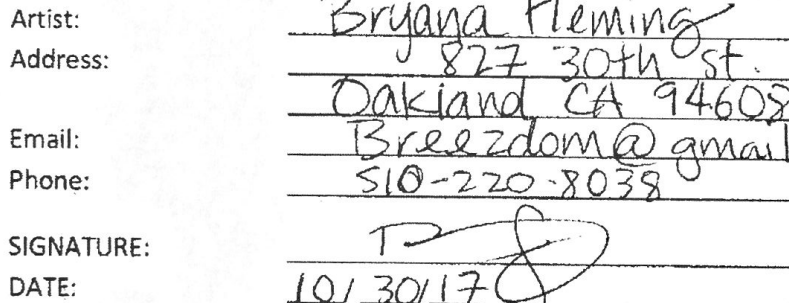 Artist: Bryana Fleming
Address: 827 30th st.
Oakland CA 94608
Email: Breezdom@gmail
Phone: 510-220-8038
SIGNATURE:
DATE: 10/30/17